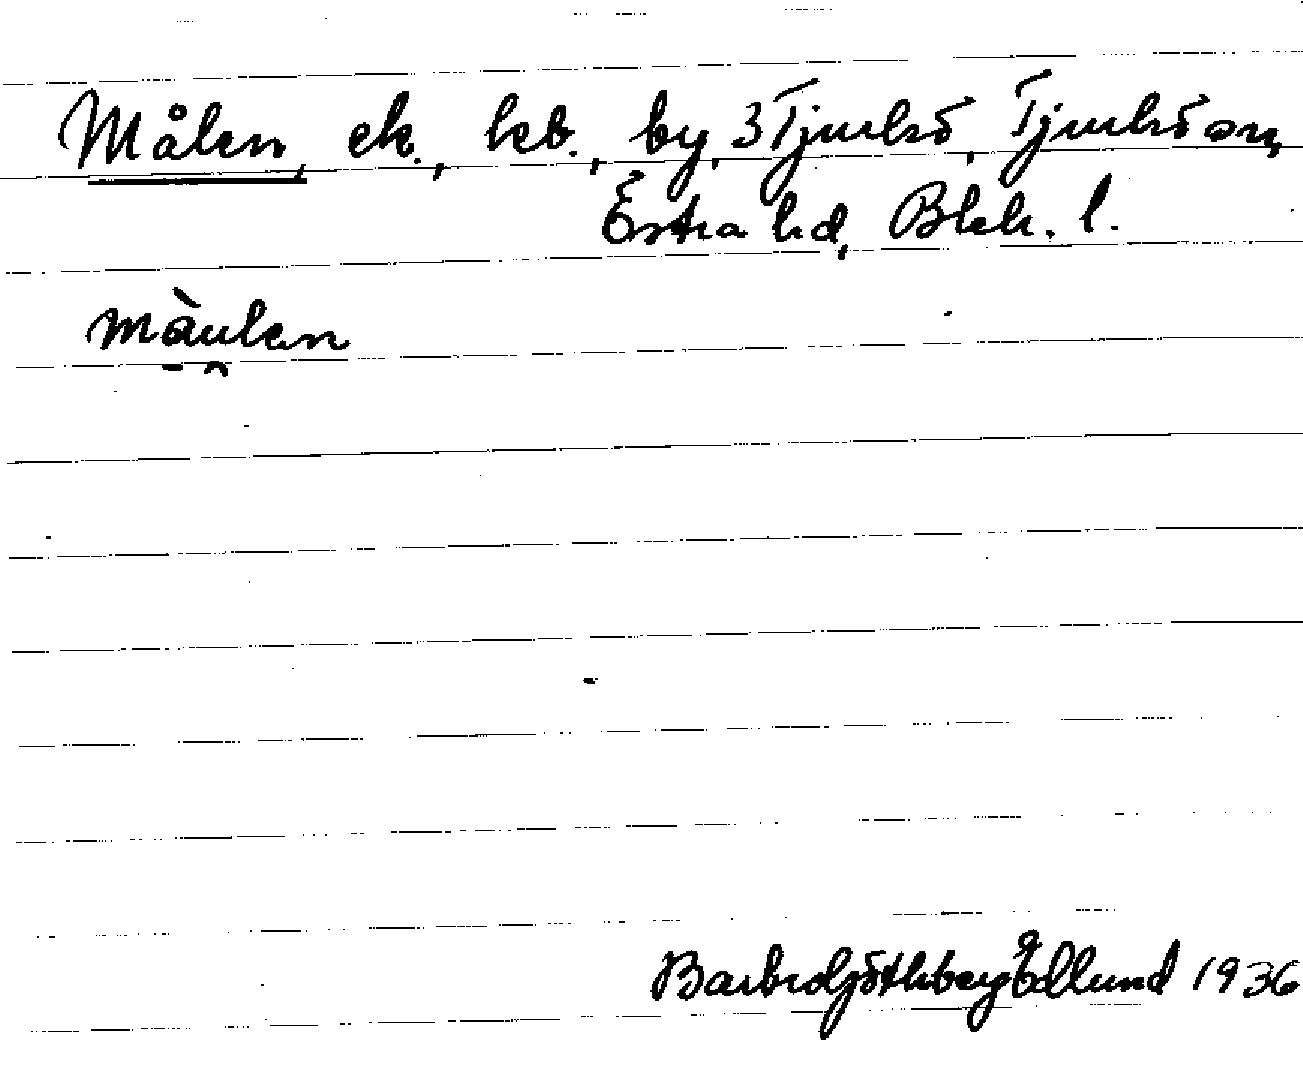 Målen, ek., keb., by, 3 Tjurkö, Tjurkö sn,
Östra hd, Blek. l.
màulen
Barbro Göthberg Edlund 1936